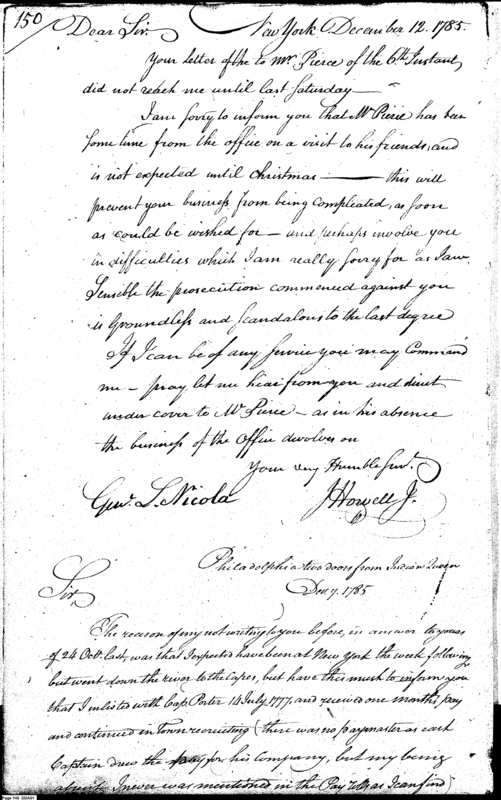 150
New York December 12. 1785.
Dear Sir.
Your letter of the to Mr. Pierce of the 6th Instant,
did not reach me until last Saturday —
I am sorry to inform you that Mr. Pierce has been
sometime from the office on a visit to his friends, and
is not expected until Christmas — this will
prevent your business from being complicated, as soon
as could be wished for — and perhaps involve you
in difficulties which I am really sorry for as I am
Sensible the prosecution commenced against you
is Groundless and Scandalous to the last degree
If I can be of any Service you may Command
me — pray let me hear from you and direct
under cover to Mr. Pierce — as in his absence
the business of the Office devolves on
Your very Humble Servt.
Genl. L. Nicola J Howell J.
Philadelphia two doors from Indian Queen
Decr 7. 1785
Sir,
The reason of my not writing to you before, in answer to yours
of 24 Octr. last, was that I expected have been at New York the week following
but went down the river to the Capes, but have this much to inform you
that I inlisted with Cap. Porter 14 July 1777, and received one months pay
and continued in Town recruiting (there was no paymaster as each
Captain drew the pay for his company, but my being
absent I never was mentioned in the Pay as I can find)
Page 149